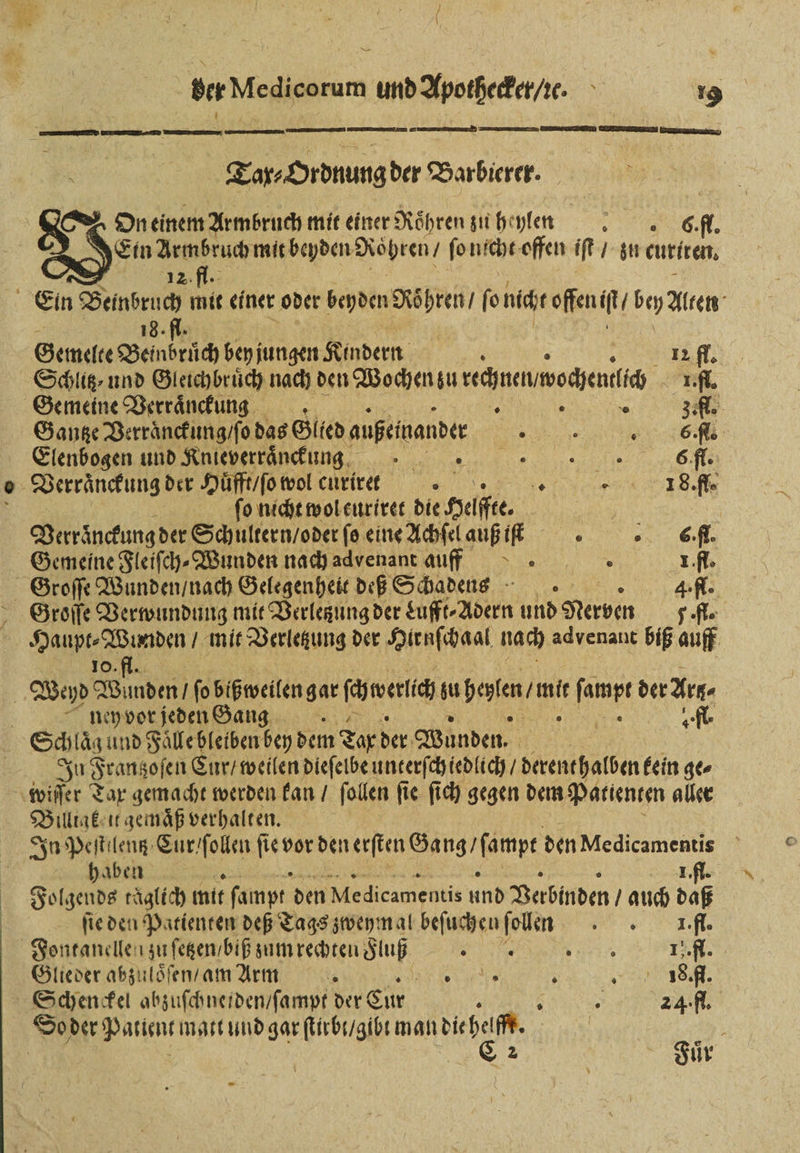 der Medicorum und Apothecker/ic. 19
Tax-Ordnung der Barbierer.
VOn einem Armbruch mit einer Röhren zu heylen . . 6.fl.
Ein Armbruch mit beyden Röhren / so nicht offen ist / zu curiren.
12.fl.
Ein Beinbruch mit einer oder beyden Röhren / so nicht offen ist / bey Alten
18.fl.
Gemelte Beinbrüch bey jungen Kindern . . . 12 fl.
Schlitz- und Gleichbrüch nach den Wochen zu rechnen/wochentlich 1.fl.
Gemeine Verränckung . . . . . . 3.fl.
Gantze Verränckung/so das Glied außeinander . . . 6.fl.
Elenbogen und Knieverränckung . . . . . 6 fl.
Verränckung der Hüfft/so wol curiret . . . . 18.fl.
so nicht wol curiret die Helffte.
Verränckung der Schultern/oder so eine Achsel auß ist . . 6.fl.
Gemeine Fleisch-Wunden nach advenant auff . . 1.fl.
Grosse Wunden/nach Gelegenheit deß Schadens . . 4.fl.
Grosse Verwundung mit Verletzung der Lufft-Adern und Nerven 5.fl.
Haupt-Wunden / mit Verletzung der Hirnschaal nach advenant biß auff
10.fl.
Weyd Wunden / so bißweilen gar schwerlich zu heylen / mit sampt der Artz-
ney vor jeden Gang . . . . . . fl.
Schläg und Fälle bleiben bey dem Tax der Wunden.
In Frantzosen Cur/ weilen dieselbe unterschiedlich / derenthalben kein ge-
wisser Tax gemacht werden kan / sollen sie sich gegen dem Patienten aller
Billigkeit gemäß verhalten.
In Pestilentz Cur/sollen sie vor den ersten Gang/sampt den Medicamentis
haben . . . . . . . 1.fl.
Folgends täglich mit sampt den Medicamentis und Verbinden / auch daß
sie den Patienten deß Tags zweymal besuchen sollen . . 1.fl.
Fontanellen zu setzen/biß zum rechten Fluß . . . . fl.
Glieder abzulösen/am Arm . . . . . . 18.fl.
Schenckel abzuschneiden/sampt der Cur . . . 24.fl.
So der Patient matt und gar stirbt/gibt man die helfft.
C 2 Für